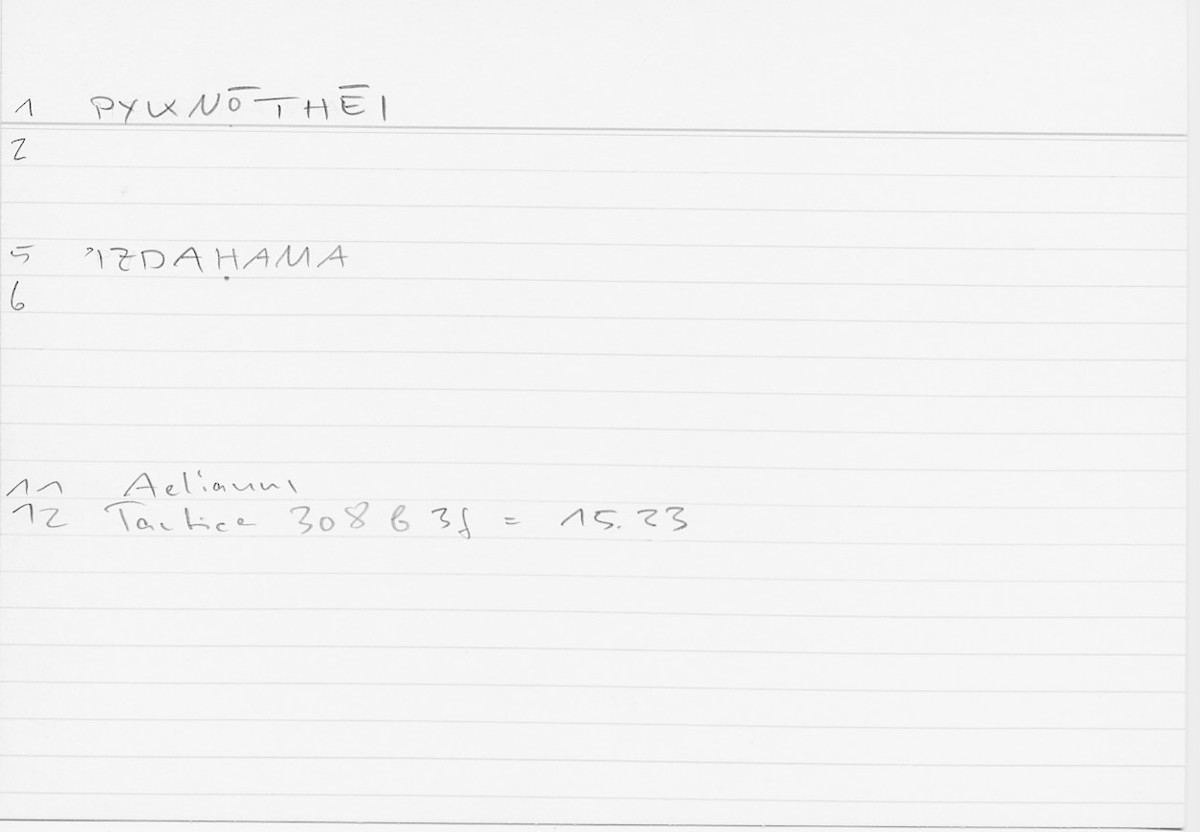 1 PYKNŌTHĒI
2
5 ʾIZDAḤAMA
6
11 Aelianus
12 Tactica 308 6 3f = 15.23